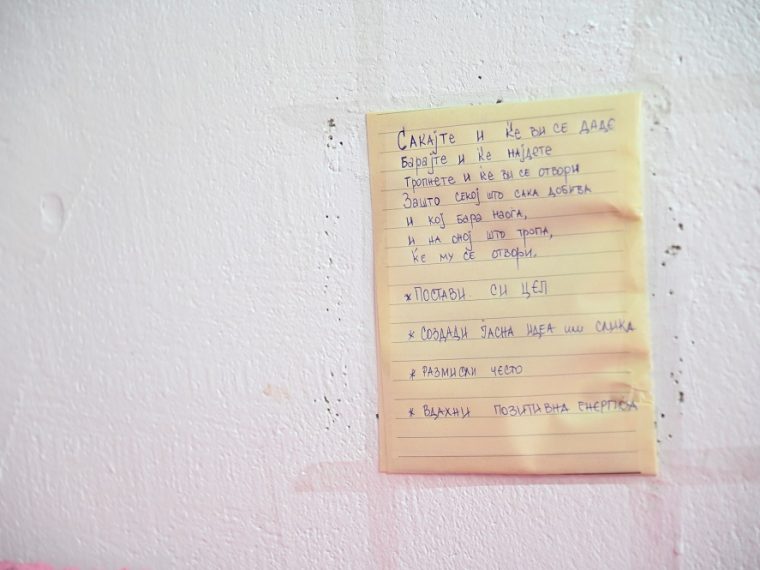 Сакајте и ќе ви се даде
Барајте и ќе најдете
Тропнете и ќе ви се отвори
Зашто секој што сака добива
и кој бара наоѓа,
и на оној што тропа,
ќе му се отвори.
*Постави си цел
*Создади јасна идеа или слика
*Размисли често
*Вдахни позитивна енергија